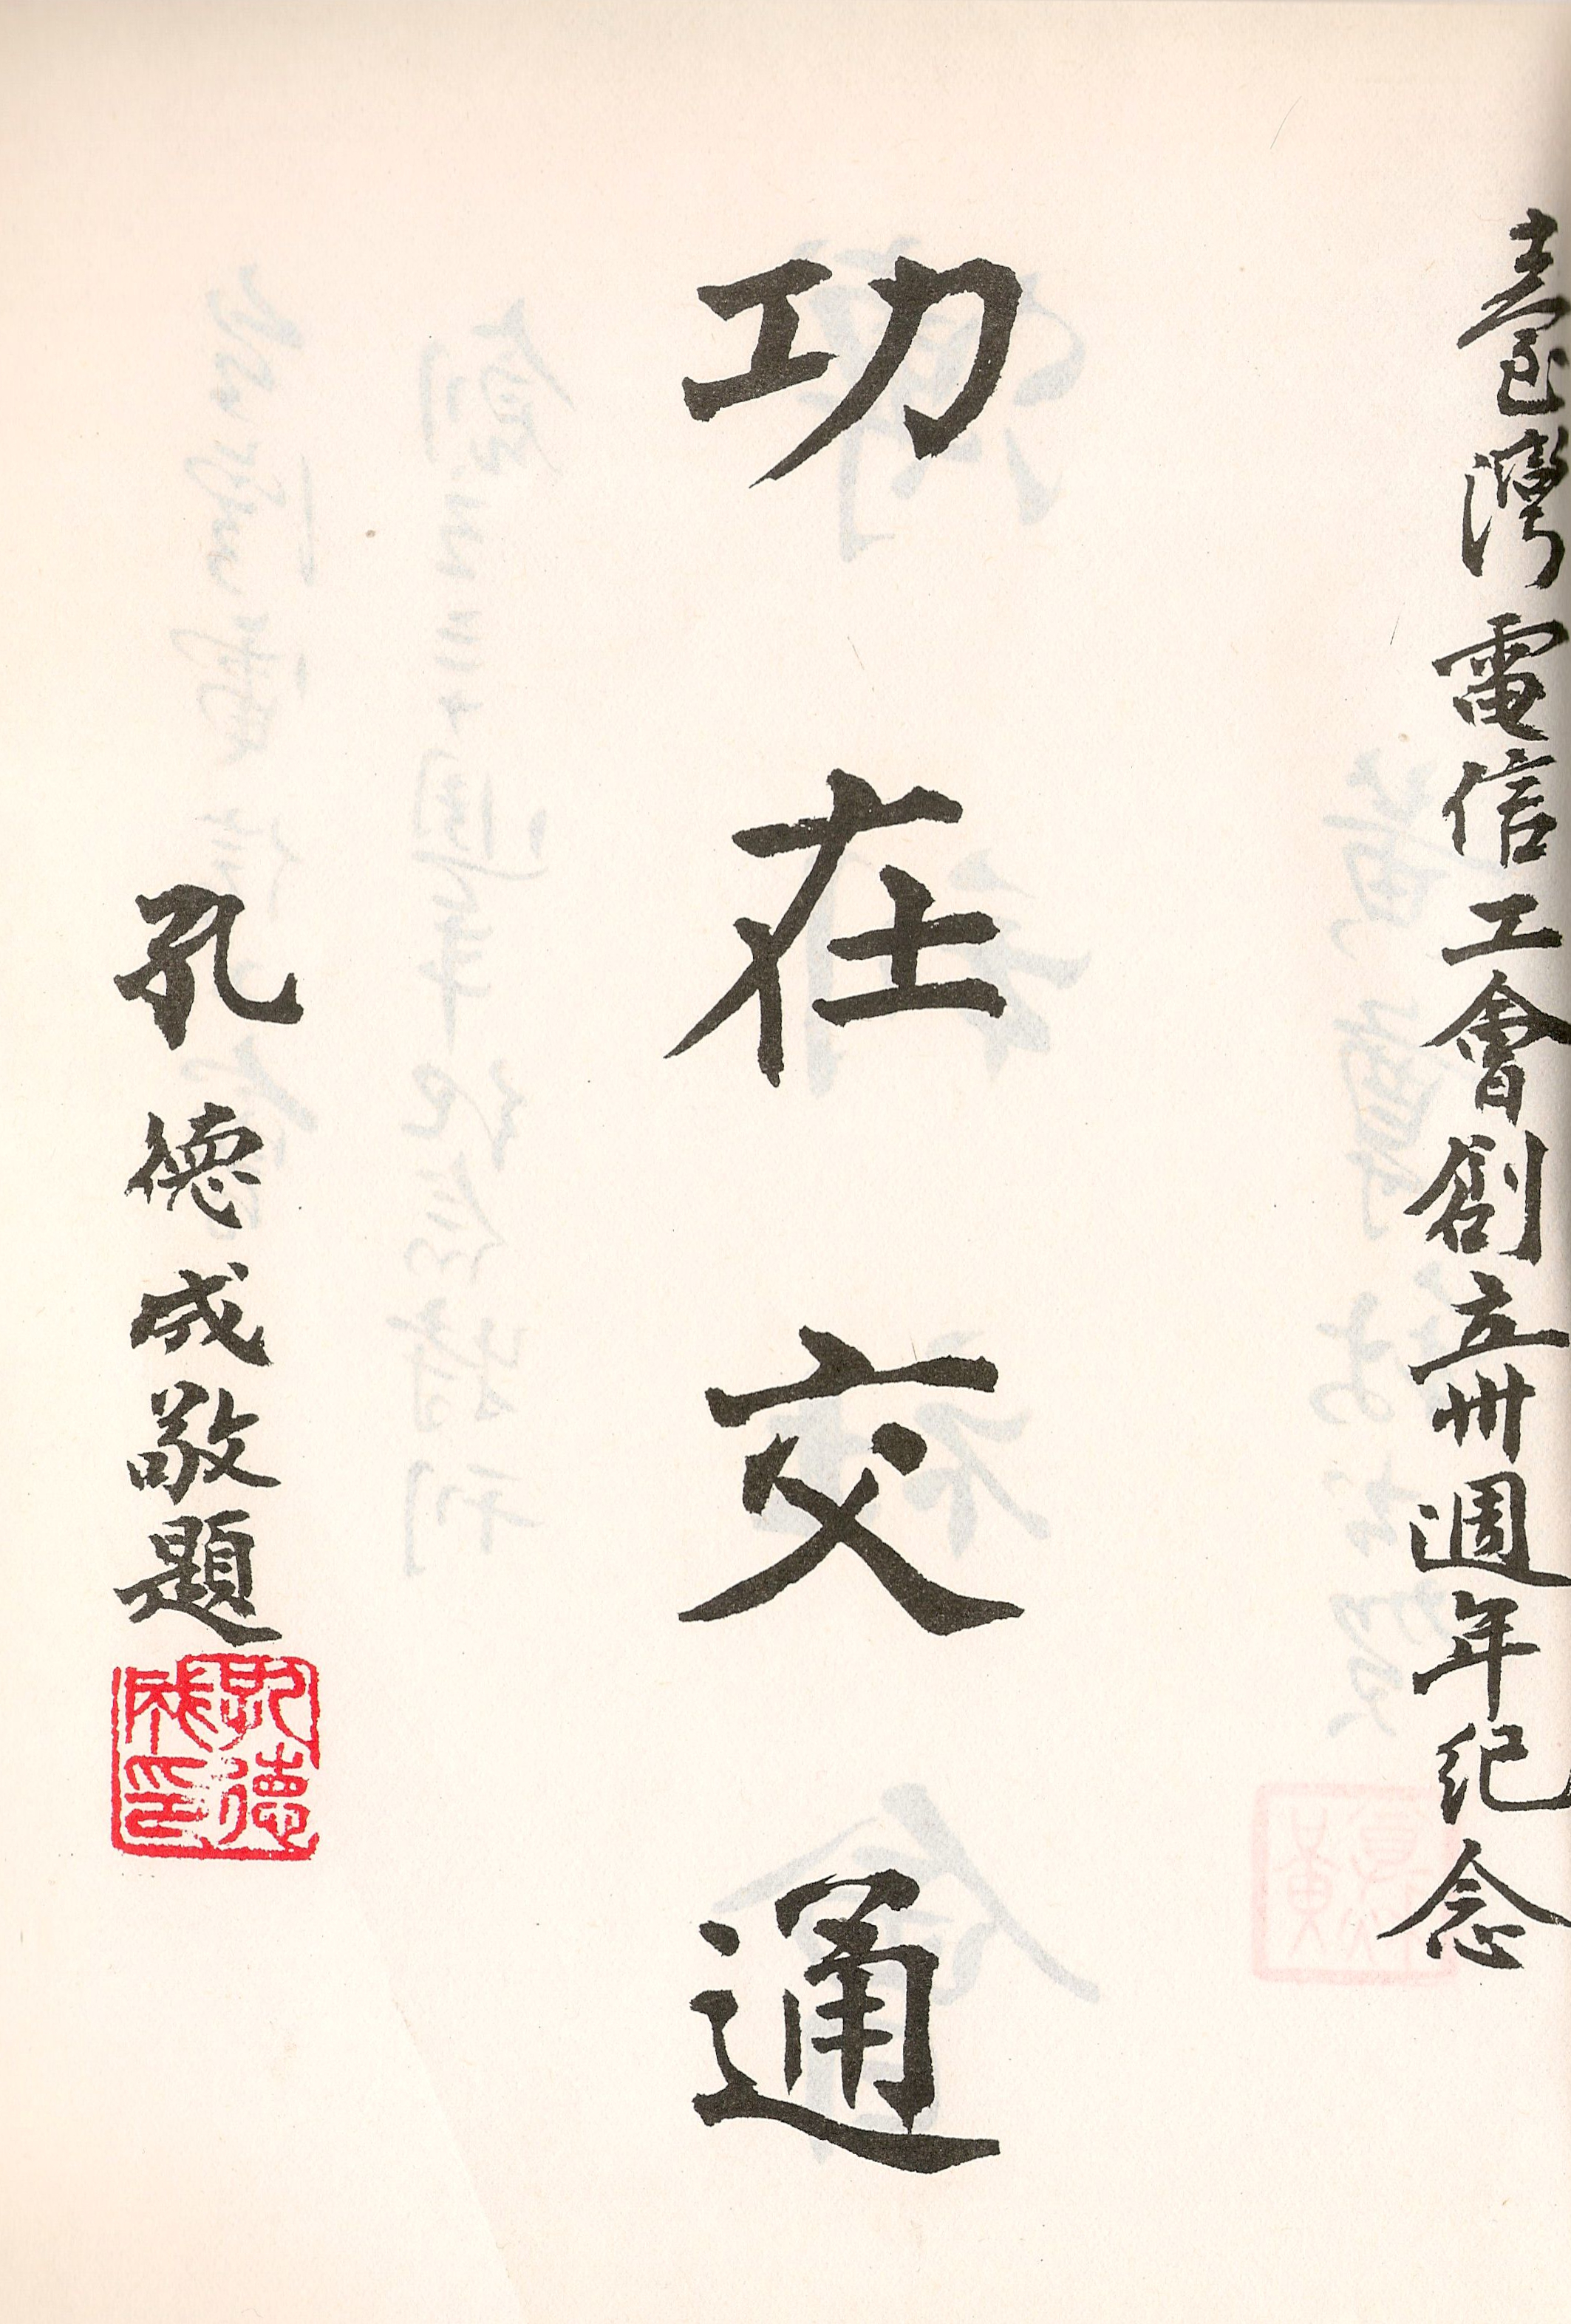 臺灣電信工會創立卅週年紀念
功在交通
孔德成敬題
孔德成印